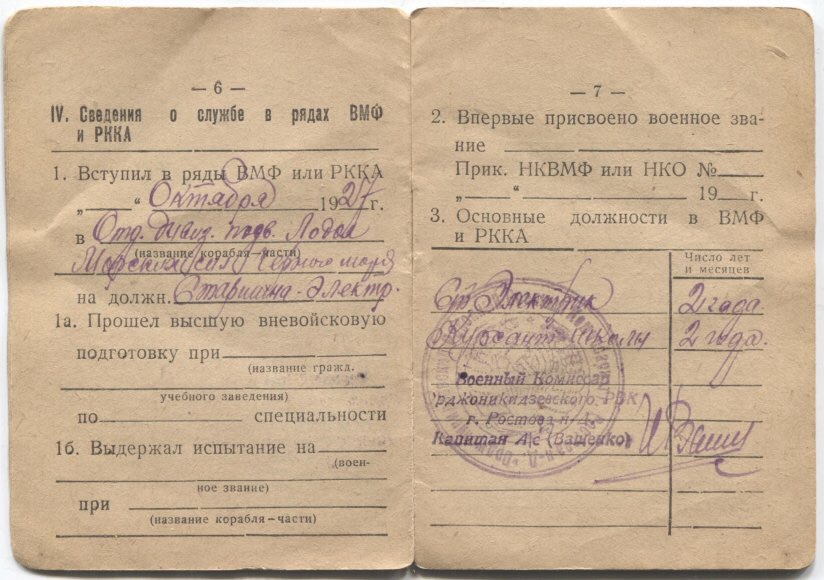 — 6 —
IV. Сведения о службе в рядах ВМФ
и РККА
1. Вступил в ряды ВМФ или РККА
„ “ Октября 1927 г.
в Отд. дивиз. подв. Лодок
(название корабля—части)
Морских сил Черного моря
на должн. Старшина-Электр.
1а. Прошел высшую вневойсковую
подготовку при
(название гражд.
учебного заведения)
по специальности
1б. Выдержал испытание на
(воен-
ное звание)
при
(название корабля—части)
— 7 —
2. Впервые присвоено военное зва-
ние
Прик. НКВМФ или НКО №
„ “ 19 г.
3. Основные должности в ВМФ
и РККА
Число лет
и месяцев
Ст. Электрик 2 года
Курсант Школы 2 года.
Военный Комиссар
рджоникидзевского РВК
г. Ростова н/Д.
Капитан А/с (Ващенко)